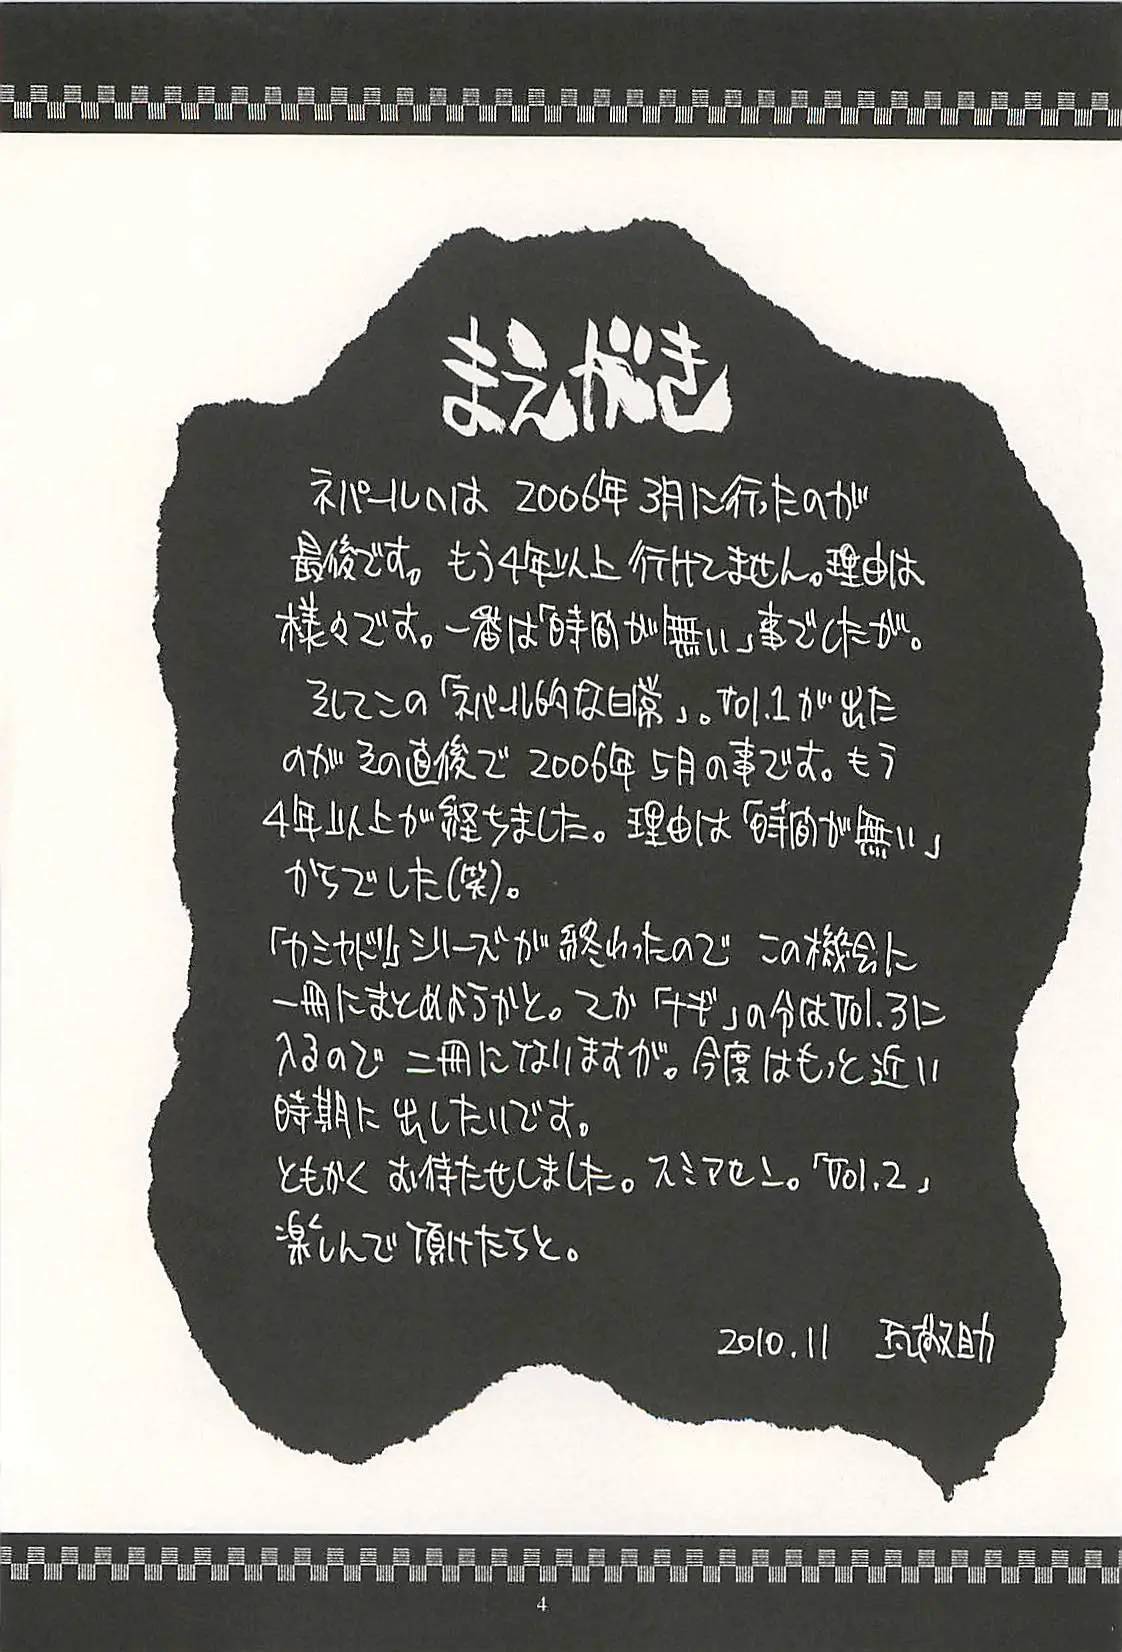 まえがき
ネパールへは 2006年 3月に行ったのが
最後です。もう4年以上 行けてません。理由は
様々です。一番は「時間が無い」事でしたが。
そしてこの「ネパール的な日常」。Vol.1が出た
のが その直後で 2006年 5月の事です。もう
4年以上が経ちました。理由は「時間が無い」
からでした(笑)。
シリーズが終わったので この機会に
一冊にまとめようかと。てか「ナギ」の分はVol.3に
入るので 二冊になりますが。今度はもっと近い
時期に 出したいです。
ともかく お待たせしました。スミマセン。「Vol.2」
楽しんで頂けたらと。
2010.11
4